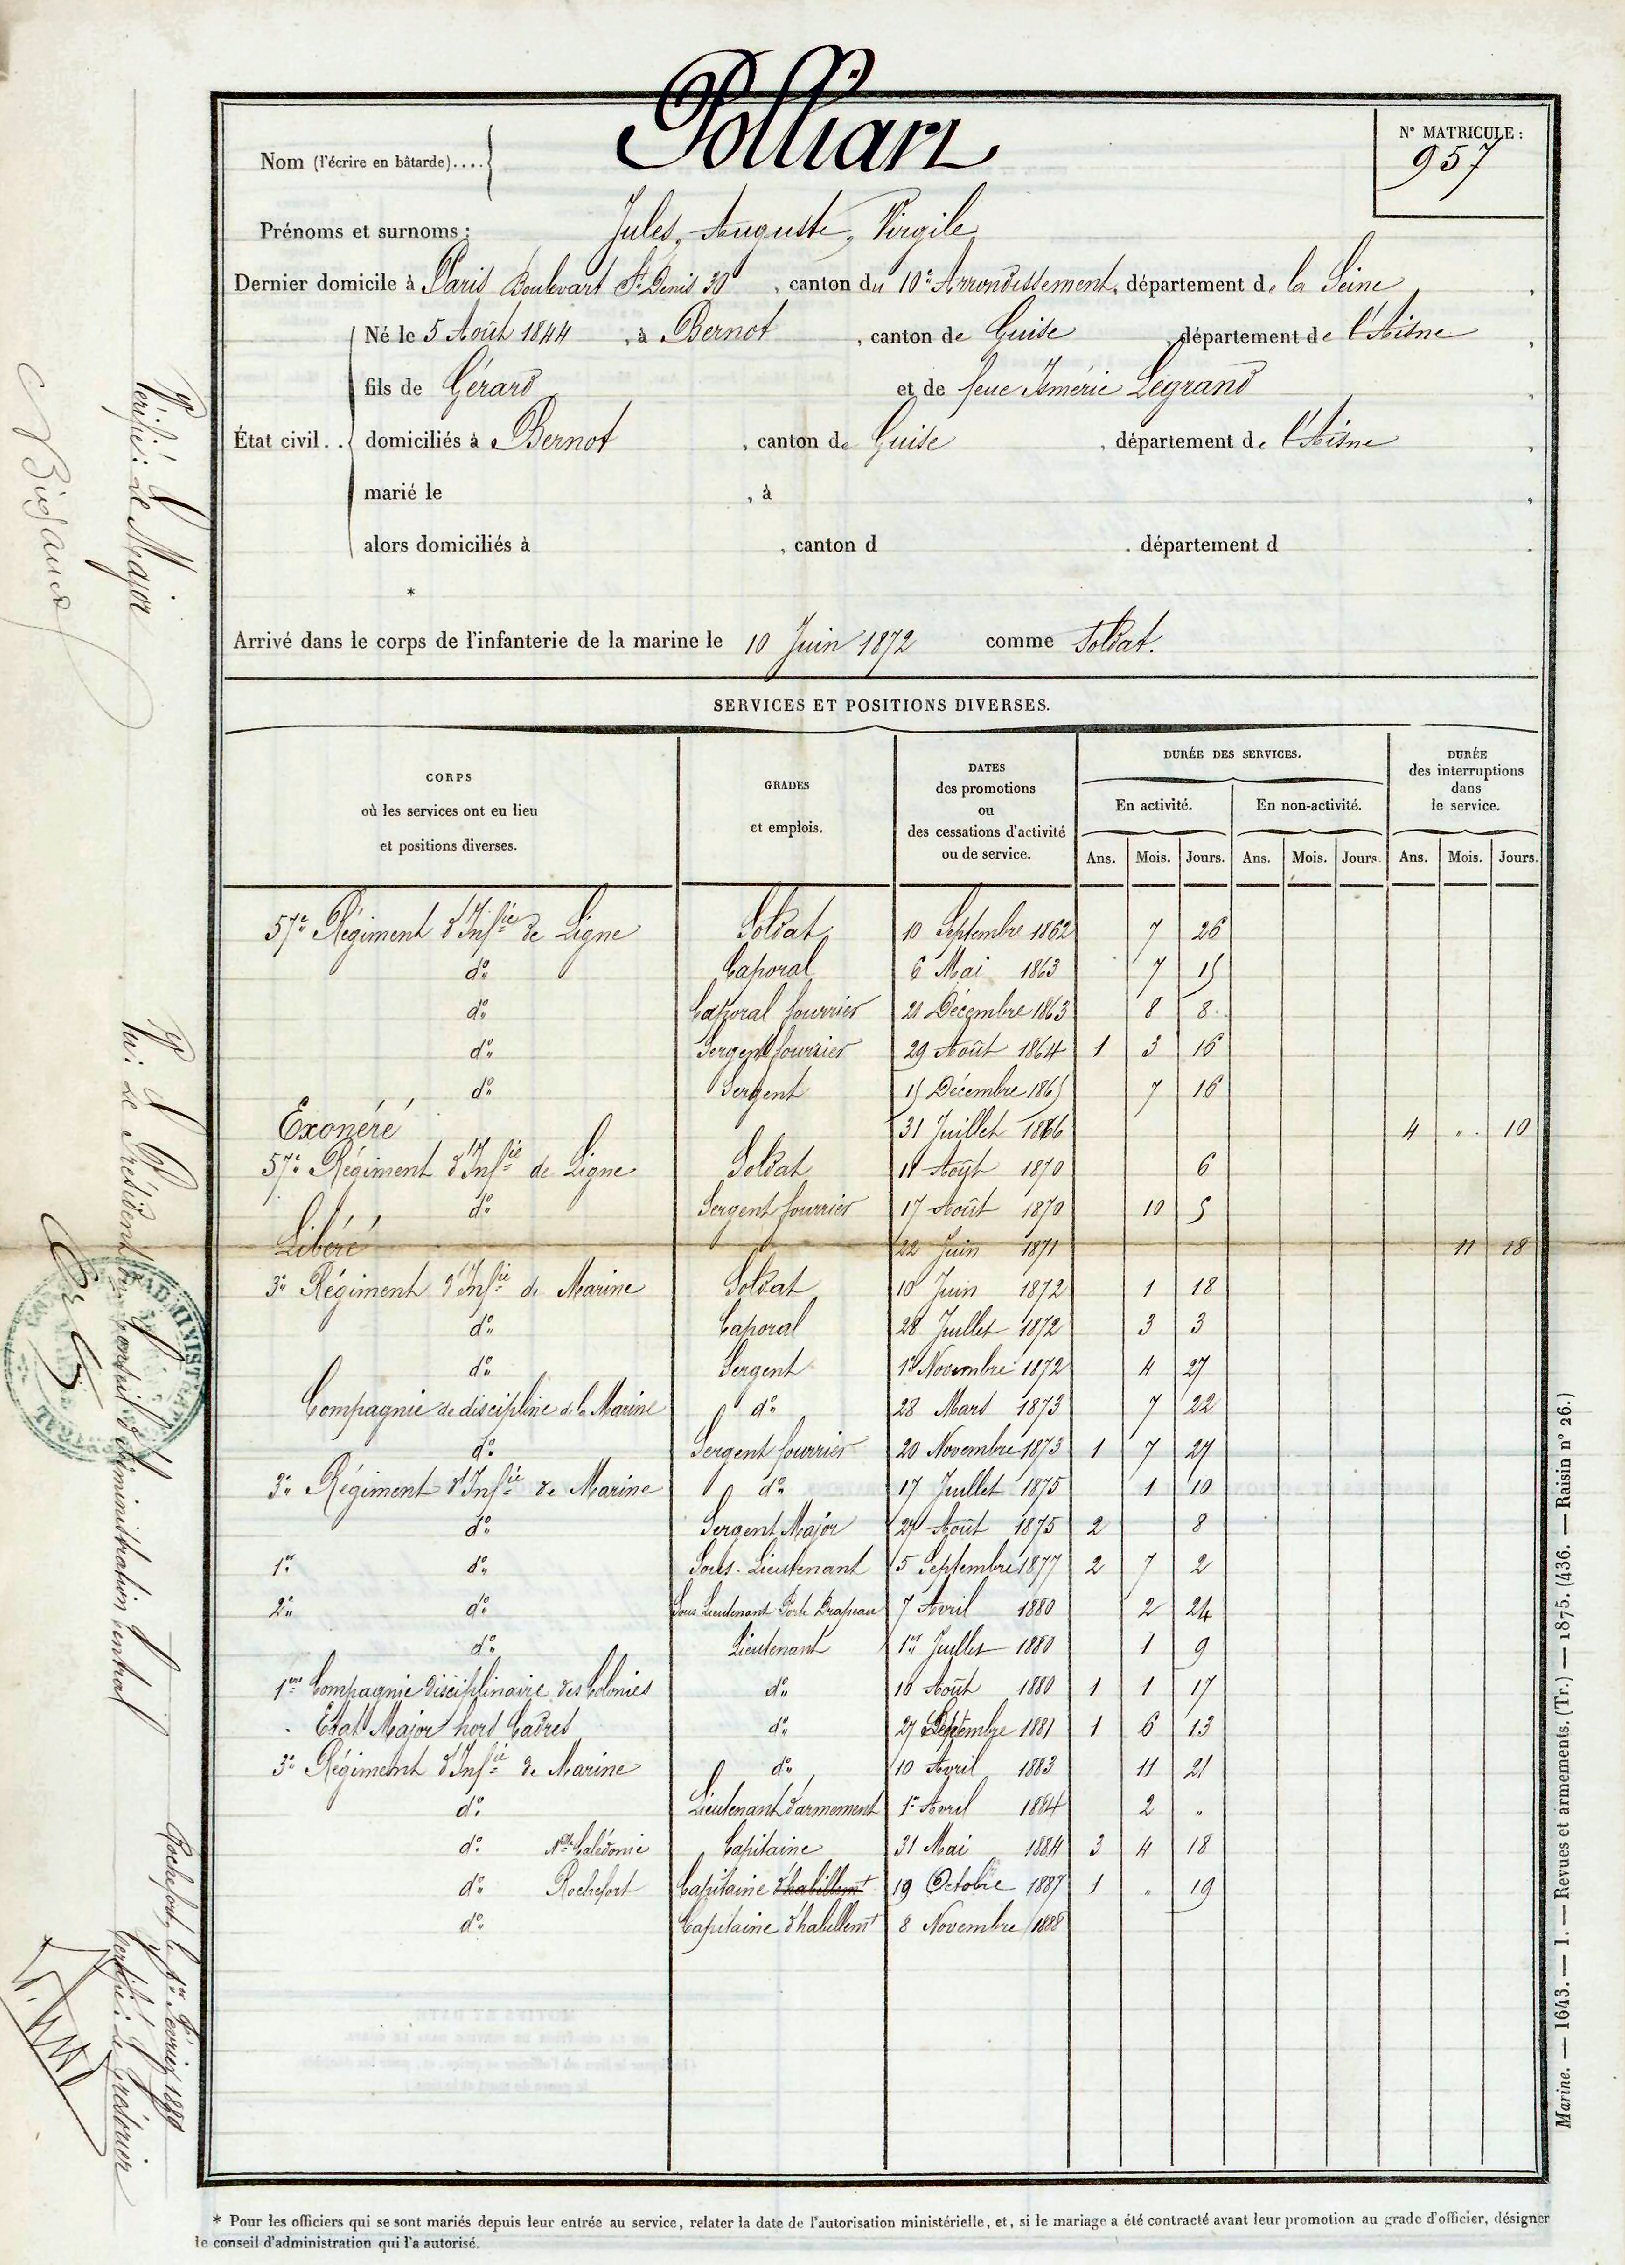 Nom (l'écrire en bâtarde).... Pollian
N° MATRICULE :
957
Prénoms et surnoms : Jules, Auguste, Virgile
Dernier domicile à Paris Boulevart St Denis 30, canton du 10e Arrondissement, département de la Seine,
Né le 5 Août 1844, à Bernot, canton de Guise, département de l'Aisne,
fils de Gérard et de feue Ismérie Legrand,
État civil.. domiciliés à Bernot, canton de Guise, département de l'Aisne,
marié le , à ,
alors domiciliés à , canton d , département d .
*
Arrivé dans le corps de l'infanterie de la marine le 10 Juin 1872 comme Soldat.
SERVICES ET POSITIONS DIVERSES.
CORPS
où les services ont eu lieu
et positions diverses.
GRADES
et emplois.
DATES
des promotions
ou
des cessations d'activité
ou de service.
DURÉE DES SERVICES.
En activité. En non-activité.
DURÉE
des interruptions
dans
le service.
Ans. Mois. Jours. Ans. Mois. Jours. Ans. Mois. Jours.
57e Régiment d'Infie de Ligne Soldat 10 Septembre 1862 7 26
do Caporal 6 Mai 1863 7 15
do Caporal fourrier 21 Décembre 1863 8 8
do Sergent fourrier 29 Août 1864 1 3 16
do Sergent 15 Décembre 1865 7 16
Exonéré 31 Juillet 1866 4 " 10
57e Régiment d'Infie de Ligne Soldat 11 Août 1870 6
do Sergent fourrier 17 Août 1870 10 5
Libéré 22 Juin 1871 11 18
3e Régiment d'Infie de Marine Soldat 10 Juin 1872 1 18
do Caporal 28 Juillet 1872 3 3
do Sergent 1er Novembre 1872 4 27
Compagnie de discipline de la Marine do 28 Mars 1873 7 22
do Sergent fourrier 20 Novembre 1873 1 7 27
3e Régiment d'Infie de Marine do 17 Juillet 1875 1 10
do Sergent Major 27 Août 1875 2 8
1er do Sous-Lieutenant 5 Septembre 1877 2 7 2
2e do Sous Lieutenant Porte Drapeau 7 Avril 1880 2 24
do Lieutenant 1er Juillet 1880 1 9
1ère Compagnie disciplinaire des Colonies do 10 Août 1880 1 1 17
Etat Major hors Cadres do 27 Septembre 1881 1 6 13
3e Régiment d'Infie de Marine do 10 Avril 1883 11 21
do Lieutenant d'armement 1er Avril 1884 2 "
do Nlle Calédonie Capitaine 31 Mai 1884 3 4 18
do Rochefort Capitaine d'habillemt 19 Octobre 1887 1 " 19
do Capitaine d'habillemt 8 Novembre 1888
Vérifié: Le Major
Vu: Le Président du Conseil d'Administration central
Rochefort, le 1er Février 1889
Certifié: Le Trésorier
Marine. — 1643. — I. — Revues et armements. (Tr.) — 1875. (436. — Raisin n° 26.)
* Pour les officiers qui se sont mariés depuis leur entrée au service, relater la date de l'autorisation ministérielle, et, si le mariage a été contracté avant leur promotion au grade d'officier, désigner
le conseil d'administration qui l'a autorisé.